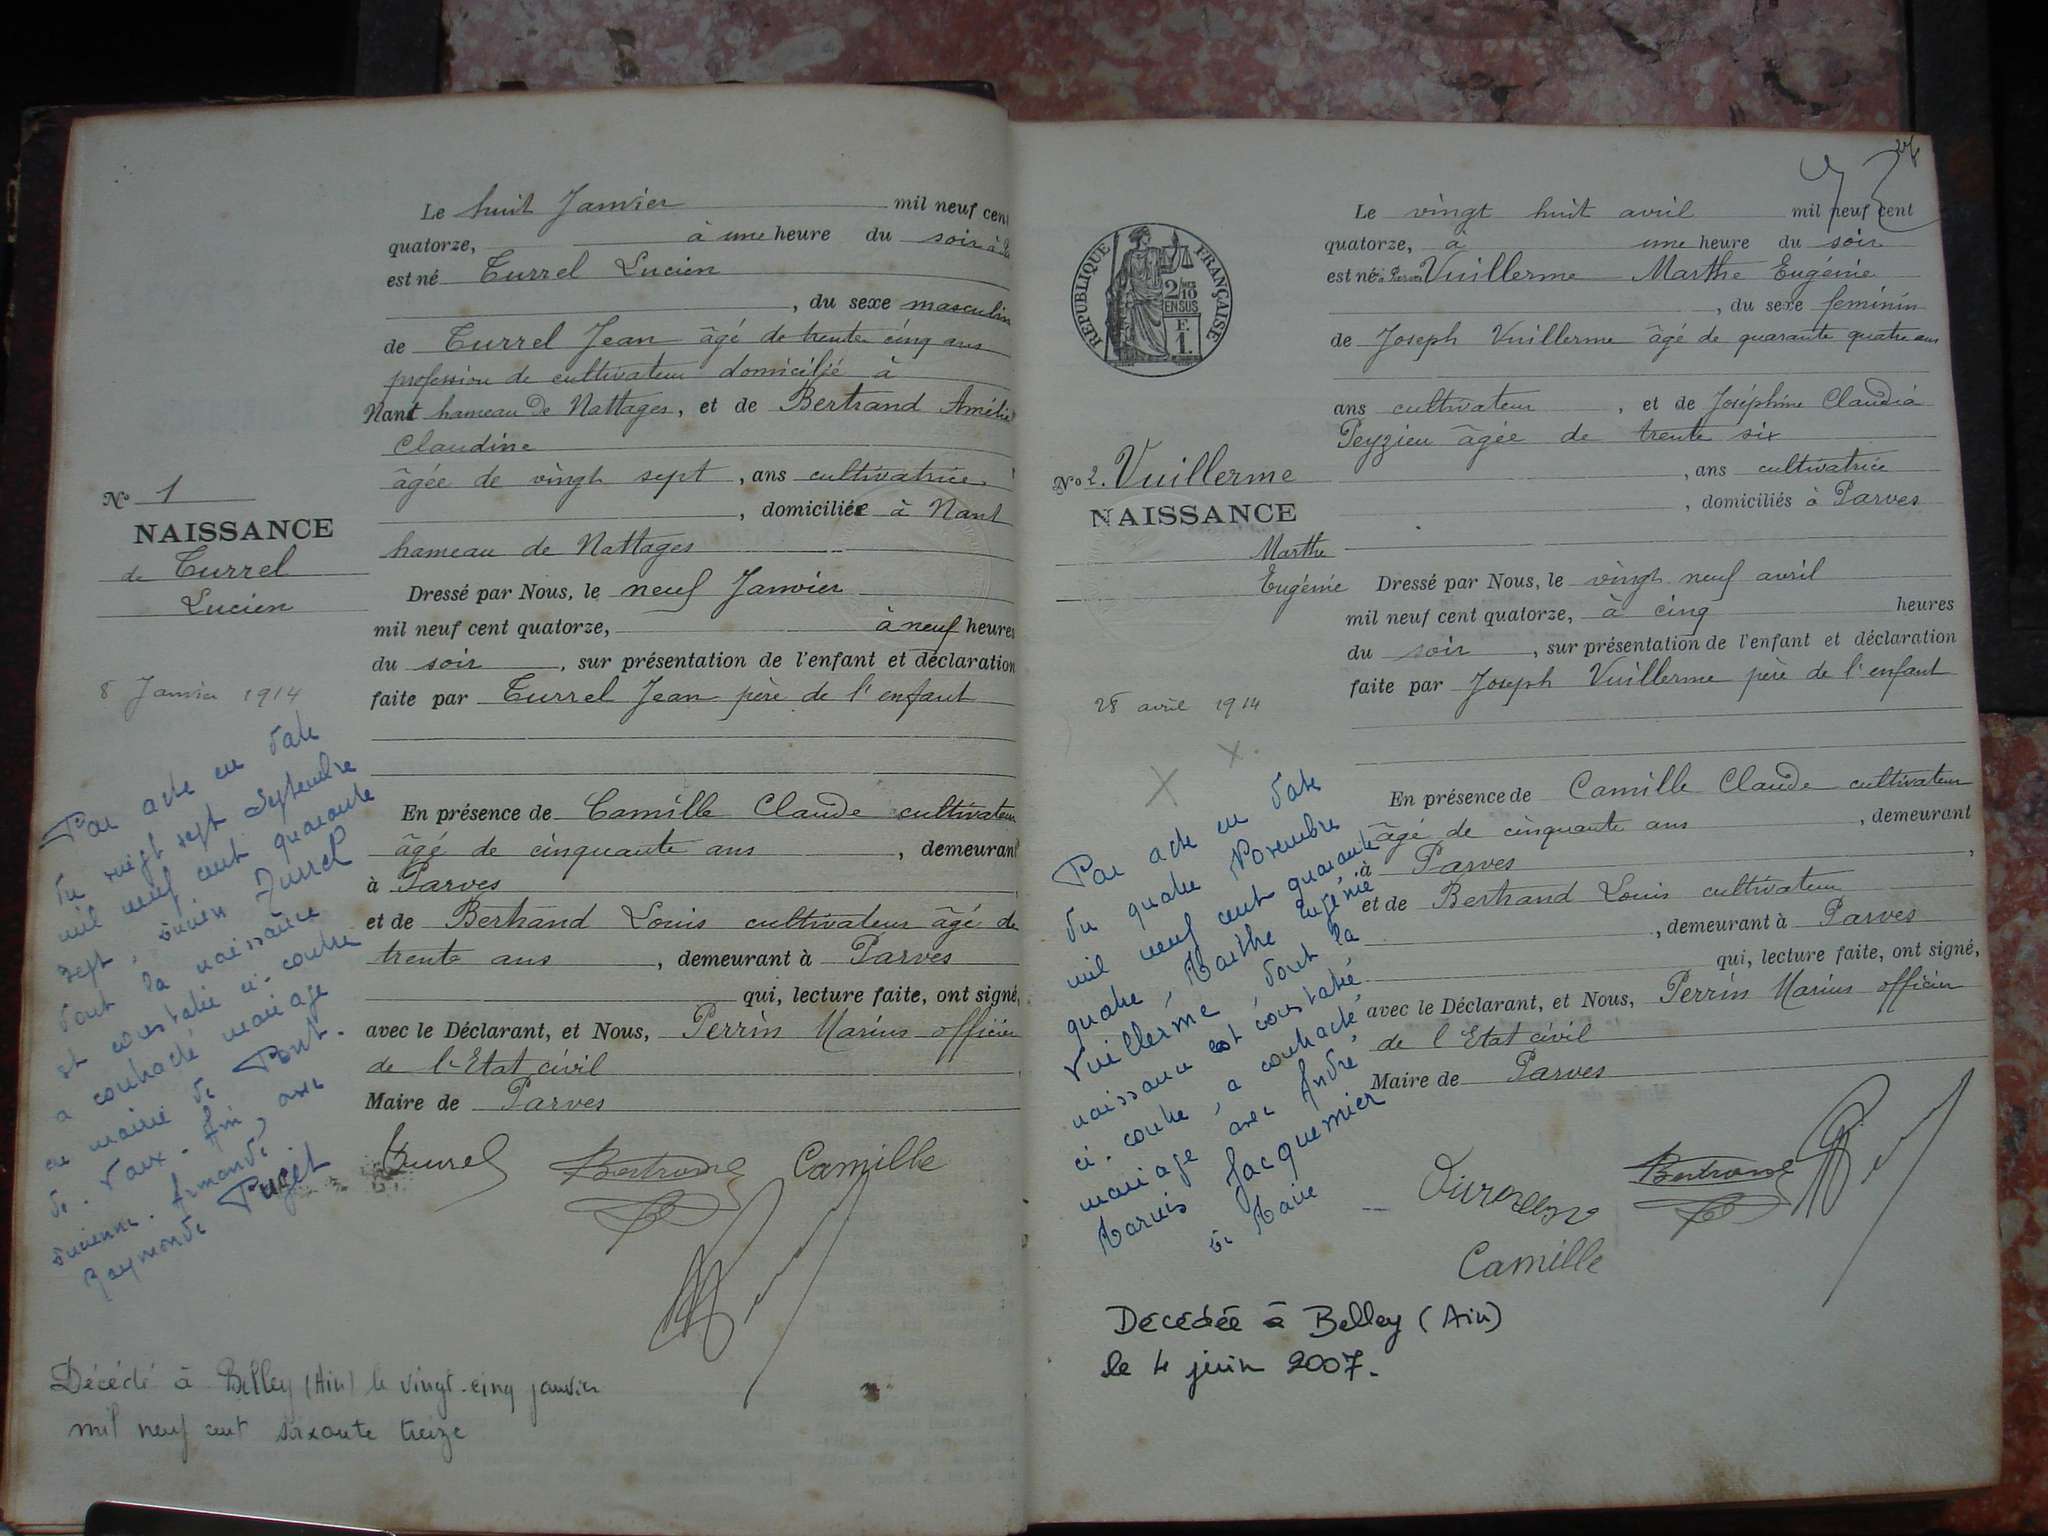 Le huit Janvier mil neuf cent
quatorze, à une heure du soir à
est né Turrel Lucien
, du sexe masculin
de Turrel Jean âgé de trente cinq ans
profession de cultivateur domicilié à
Nant hameau de Nattages, et de Bertrand Amélie
Claudine
âgée de vingt sept , ans cultivatrice
, domiciliée à Nant
hameau de Nattages
Dressé par Nous, le neuf Janvier
mil neuf cent quatorze, à neuf heures
du soir , sur présentation de l'enfant et déclaration
faite par Turrel Jean père de l'enfant
En présence de Camille Claude cultivateur
âgé de cinquante ans , demeurant
à Parves
et de Bertrand Louis cultivateur âgé de
trente ans , demeurant à Parves
qui, lecture faite, ont signé,
avec le Déclarant, et Nous, Perrin Marius officier
de l'Etat civil
Maire de Parves
Turrel Bertrand Camille
No 1
NAISSANCE
de Turrel
Lucien
8 Janvier 1914
Par acte en date
du vingt sept Septembre
mil neuf cent quarante
sept, Lucien Turrel
dont la naissance
est constatée ci-contre
a contracté mariage
en mairie de Pont-
de-Vaux-Ain, avec
Lucienne-Armande
Raymonde Puget
Décédé à Belley (Ain) le vingt-cinq janvier
mil neuf cent soixante treize
Le vingt huit avril mil neuf cent
quatorze, à une heure du soir
est né à Parves Vuillerme Marthe Eugénie
, du sexe féminin
de Joseph Vuillerme âgé de quarante quatre ans
ans cultivateur , et de Joséphine Claudia
Peyzieu âgée de trente six
, ans cultivatrice
, domiciliés à Parves
Dressé par Nous, le vingt neuf avril
mil neuf cent quatorze, à cinq heures
du soir , sur présentation de l'enfant et déclaration
faite par Joseph Vuillerme père de l'enfant
En présence de Camille Claude cultivateur
âgé de cinquante ans , demeurant
à Parves ,
et de Bertrand Louis cultivateur
, demeurant à Parves
qui, lecture faite, ont signé,
avec le Déclarant, et Nous, Perrin Marius officier
de l'Etat civil
Maire de Parves
Bertrand
Camille
RÉPUBLIQUE FRANÇAISE
2/10
EN SUS
F.
1.
No 2. Vuillerme
NAISSANCE
Marthe
Eugénie
28 avril 1914
X X
Par acte en date
du quatre Novembre
mil neuf cent quarante
quatre, Marthe Eugénie
Vuillerme, dont la
naissance est constatée
ci-contre, a contracté
mariage avec André,
Marius Jacquemier
Le Maire
Décédée à Belley (Ain)
le 4 juin 2007.